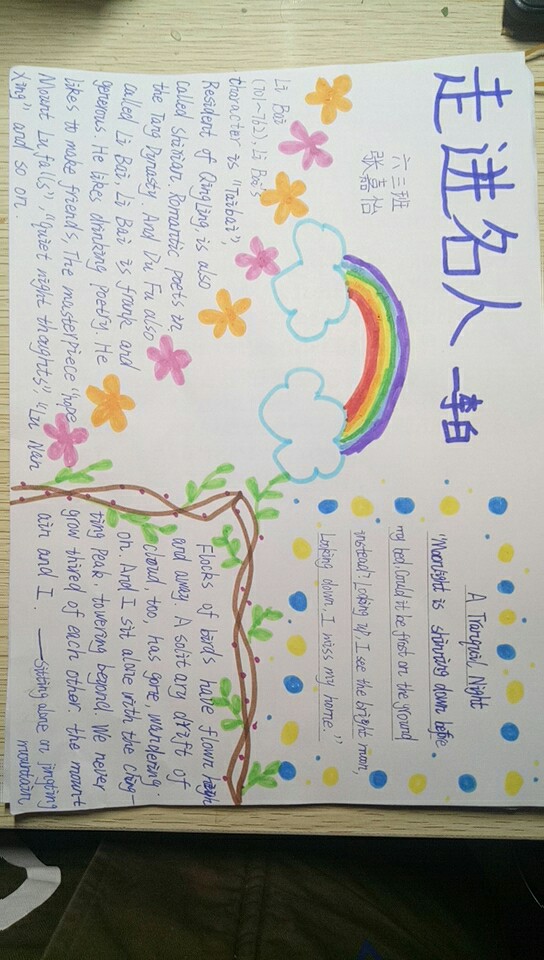 走进名人 —李白
六三班
张嘉怡
Li Bai
(701~762), Li Bai's
character is "Taibai",
Resident of Qingling is also
called Shixian. Romantic poets in
the Tang Dynasty. And Du Fu also
called Li Bai, Li Bai is frank and
generous. He likes drinking poetry. He
likes to make friends, The masterpiece "hope
Mount Lu falls", "quiet night thoughts", "Lu Nan
Xing" and so on.
A Tranquil Night
"Moonlight is shining down before
my bed. Could it be frost on the ground
instead? Looking up, I see the bright moon,
Linking down, I miss my home."
Flocks of birds have flown high
and away. A solitary draft of
cloud, too, has gone, wandering
on. And I sit alone with the Ching-
ting Peak, towering beyond. We never
grow thired of each other, the mount
ain and I. ——Sitting alone on jingting
mountain